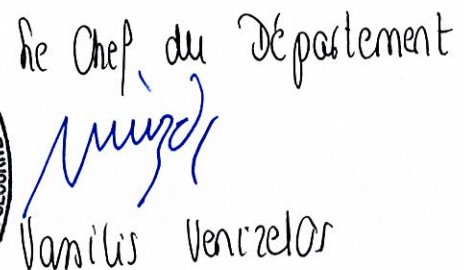 Le Chef du Département
Vassilis Venizelos